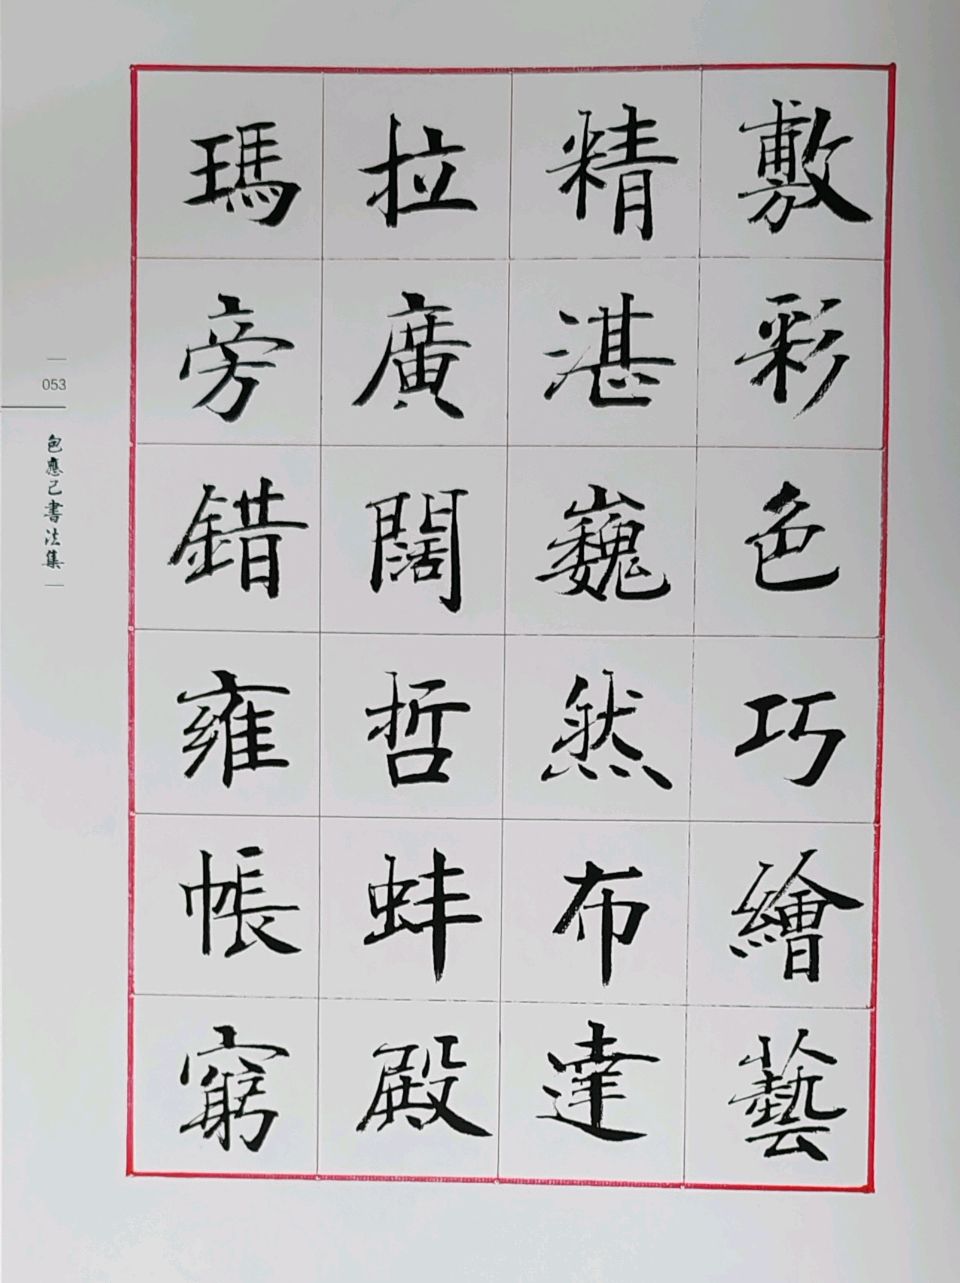 敷彩色巧繪藝
精湛巍然布達
拉廣闊哲蚌殿
瑪旁錯雍帳窮
053
包應己書法集